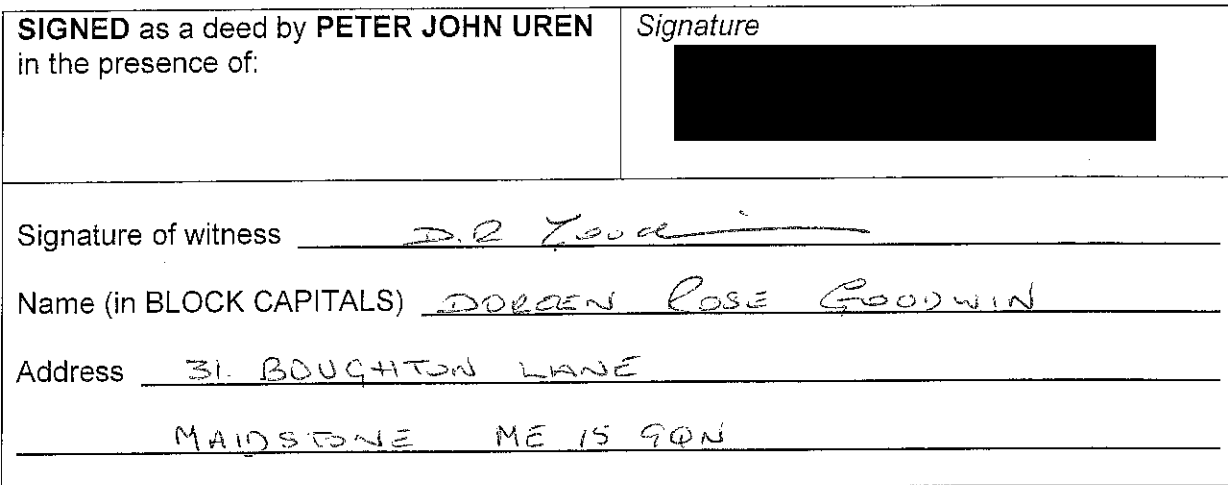 SIGNED as a deed by PETER JOHN UREN
in the presence of:
Signature
Signature of witness D.R
Name (in BLOCK CAPITALS) DOREEN ROSE GOODWIN
Address 31. BOUGHTON LANE
MAIDSTONE ME 15 9QN